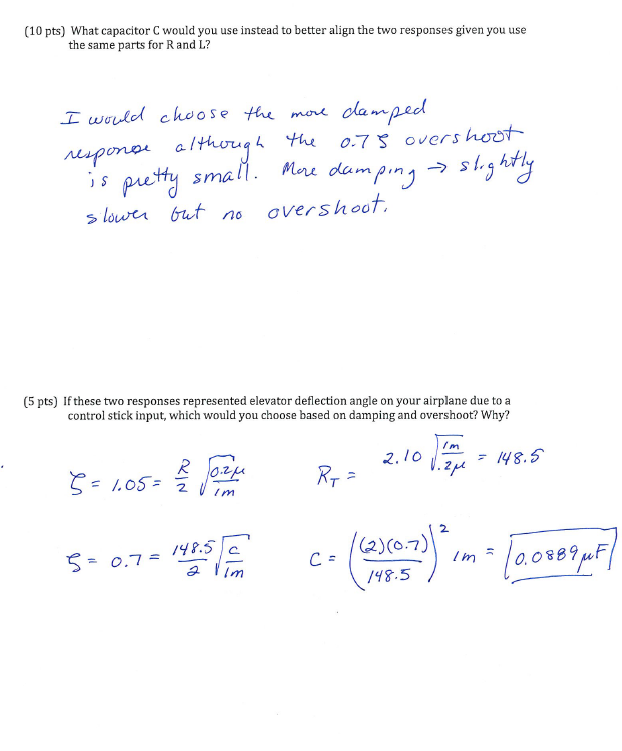 (10 pts) What capacitor C would you use instead to better align the two responses given you use
the same parts for R and L?
I would choose the more damped
response although the 0.7 ζ overshoot
is pretty small. More damping → slightly
slower but no overshoot.
(5 pts) If these two responses represented elevator deflection angle on your airplane due to a
control stick input, which would you choose based on damping and overshoot? Why?
ζ = 1.05 = R/2 √(0.2μ/1m) R_T = 2.10 √(1m/.2μ) = 148.5
ζ = 0.7 = 148.5/2 √(C/1m) C = ((2)(0.7)/148.5)² 1m = 0.0889 μF